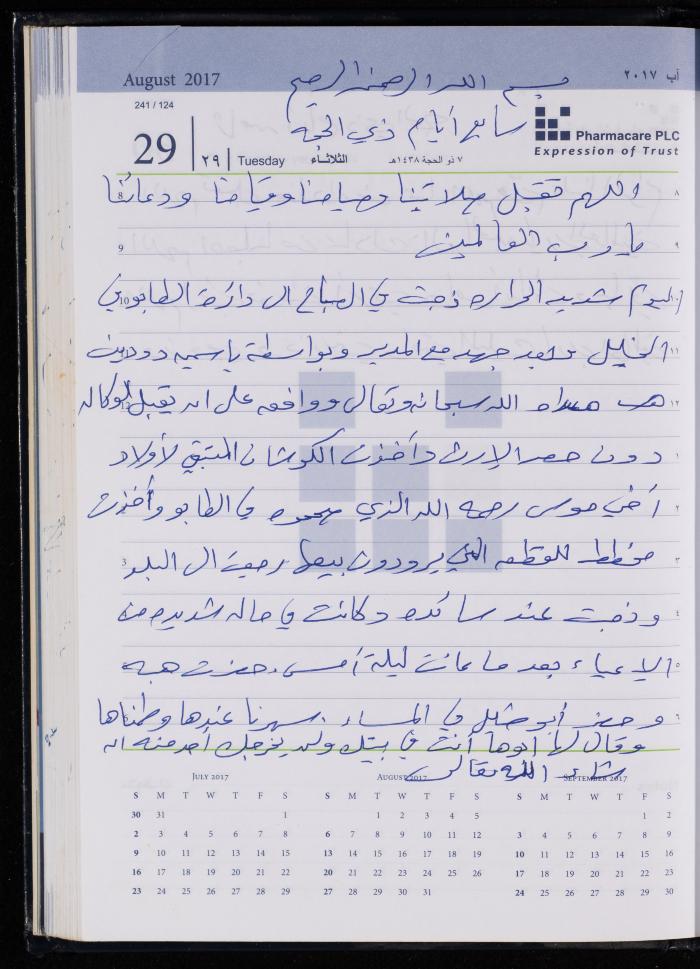 August 2017
آب ٢٠١٧
بسم الله الرحمن الرحيم
241 / 124
سابع أيام ذي الحجه
Pharmacare PLC
Expression of Trust
29 | ٢٩ | Tuesday الثلاثاء ٧ ذو الحجة ١٤٣٨هـ
اللهم تقبل صلاتنا وصيامنا وقيامنا ودعائنا
يا رب العالمين
اليوم شديد الحراره ذهبت في الصباح الى دائرة الطابو في
الخليل وبعد جهد مع المدير وبواسطة ياسر
الله سبحانه وتعالى ووافقه على انه يقبل الوكاله
دون حصر الإرث وأخذت الكوشان المتبقي لأولاد
أخي موسى رحمه الله الذي في الطابو وأخذت
مخطط للقطعه التي يريدون بيعها رجعت الى البلد
وذهبت عند وكانت في حاله شديده من
الإعياء بعد ما عانت ليلة أمس حضرت هبه
وحضر أبو في المساء سهرنا عندها وطمناها
وقال لها أبوها أنت في بيتك ولن يخرجك أحد منه ان
شاء الله تعالى
JULY 2017
S M T W T F S
30 31 1
2 3 4 5 6 7 8
9 10 11 12 13 14 15
16 17 18 19 20 21 22
23 24 25 26 27 28 29
AUGUST 2017
S M T W T F S
1 2 3 4 5
6 7 8 9 10 11 12
13 14 15 16 17 18 19
20 21 22 23 24 25 26
27 28 29 30 31
SEPTEMBER 2017
S M T W T F S
1 2
3 4 5 6 7 8 9
10 11 12 13 14 15 16
17 18 19 20 21 22 23
24 25 26 27 28 29 30